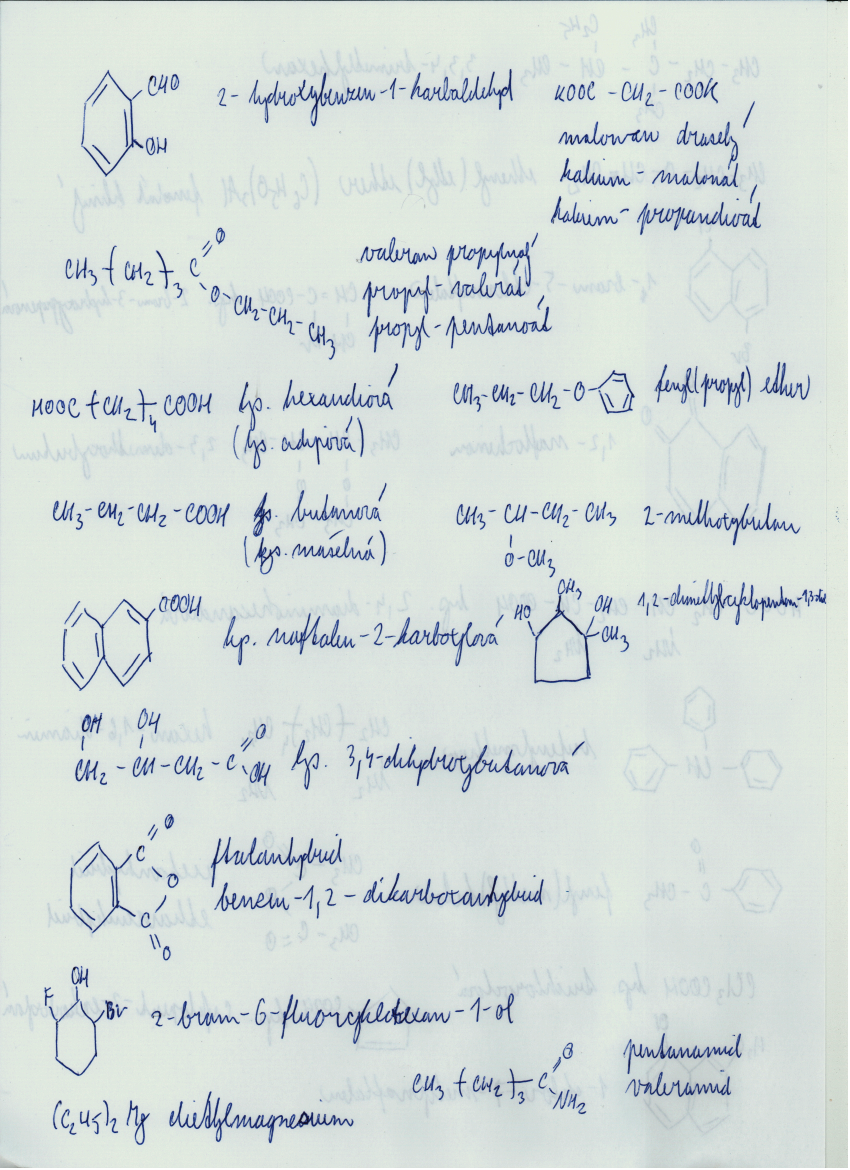 CHO
OH
2-hydroxybenzen-1-karbaldehyd
KOOC - CH2 - COOK
malonan draselý
kalium-malonát
kalium-propandioát
CH3-(CH2)3 C O
O-CH2-CH2-CH3
valeran propylnatý
propyl-valerát
propyl-pentanoát
HOOC-(CH2)4 COOH kys. hexandiová
(kys. adipová)
CH3-CH2-CH2-O- fenyl(propyl) ether
CH3-CH2-CH2-COOH kys. butanová
(kys. máselná)
CH3-CH-CH2-CH3 2-methoxybutan
O-CH3
COOH
kys. naftalen-2-karboxylová
HO CH3 OH
CH3
1,2-dimethylcyklopentan-1,3-diol
OH OH
CH2-CH-CH2-C O
OH
kys. 3,4-dihydroxybutanová
C O
O
C
O
ftalanhydrid
benzen-1,2-dikarboxanhydrid
OH
F Br
2-brom-6-fluorcyklohexan-1-ol
CH3-(CH2)3 C O
NH2
pentanamid
valeramid
(C2H5)2 Mg diethylmagnesium